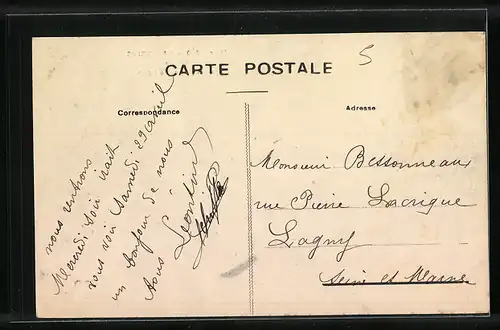 5
CARTE POSTALE
Correspondance
Adresse
nous rentrions
Mercredi soir irait
vous voir Samedi 29 avril
un bonjour de nous
tous Léontine
Monsieur Bessonneau
rue Pierre Lacrique
Lagny
Seine et Marne